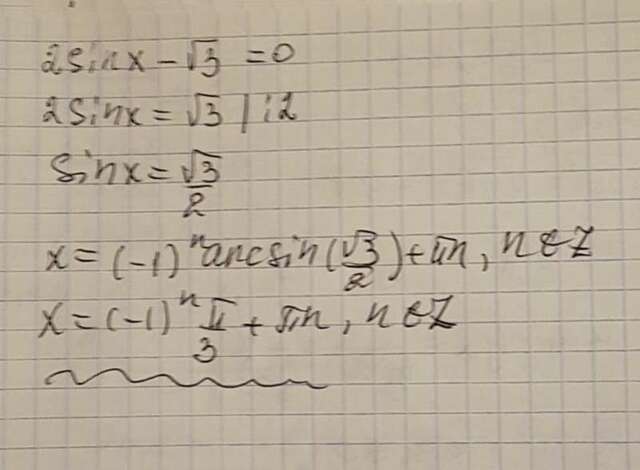 2sinx - √3 = 0
2sinx = √3 | :2
sinx = √3/2
x = (-1)ⁿ arcsin(√3/2) + πn, n ∈ Z
x = (-1)ⁿ π/3 + πn, n ∈ Z